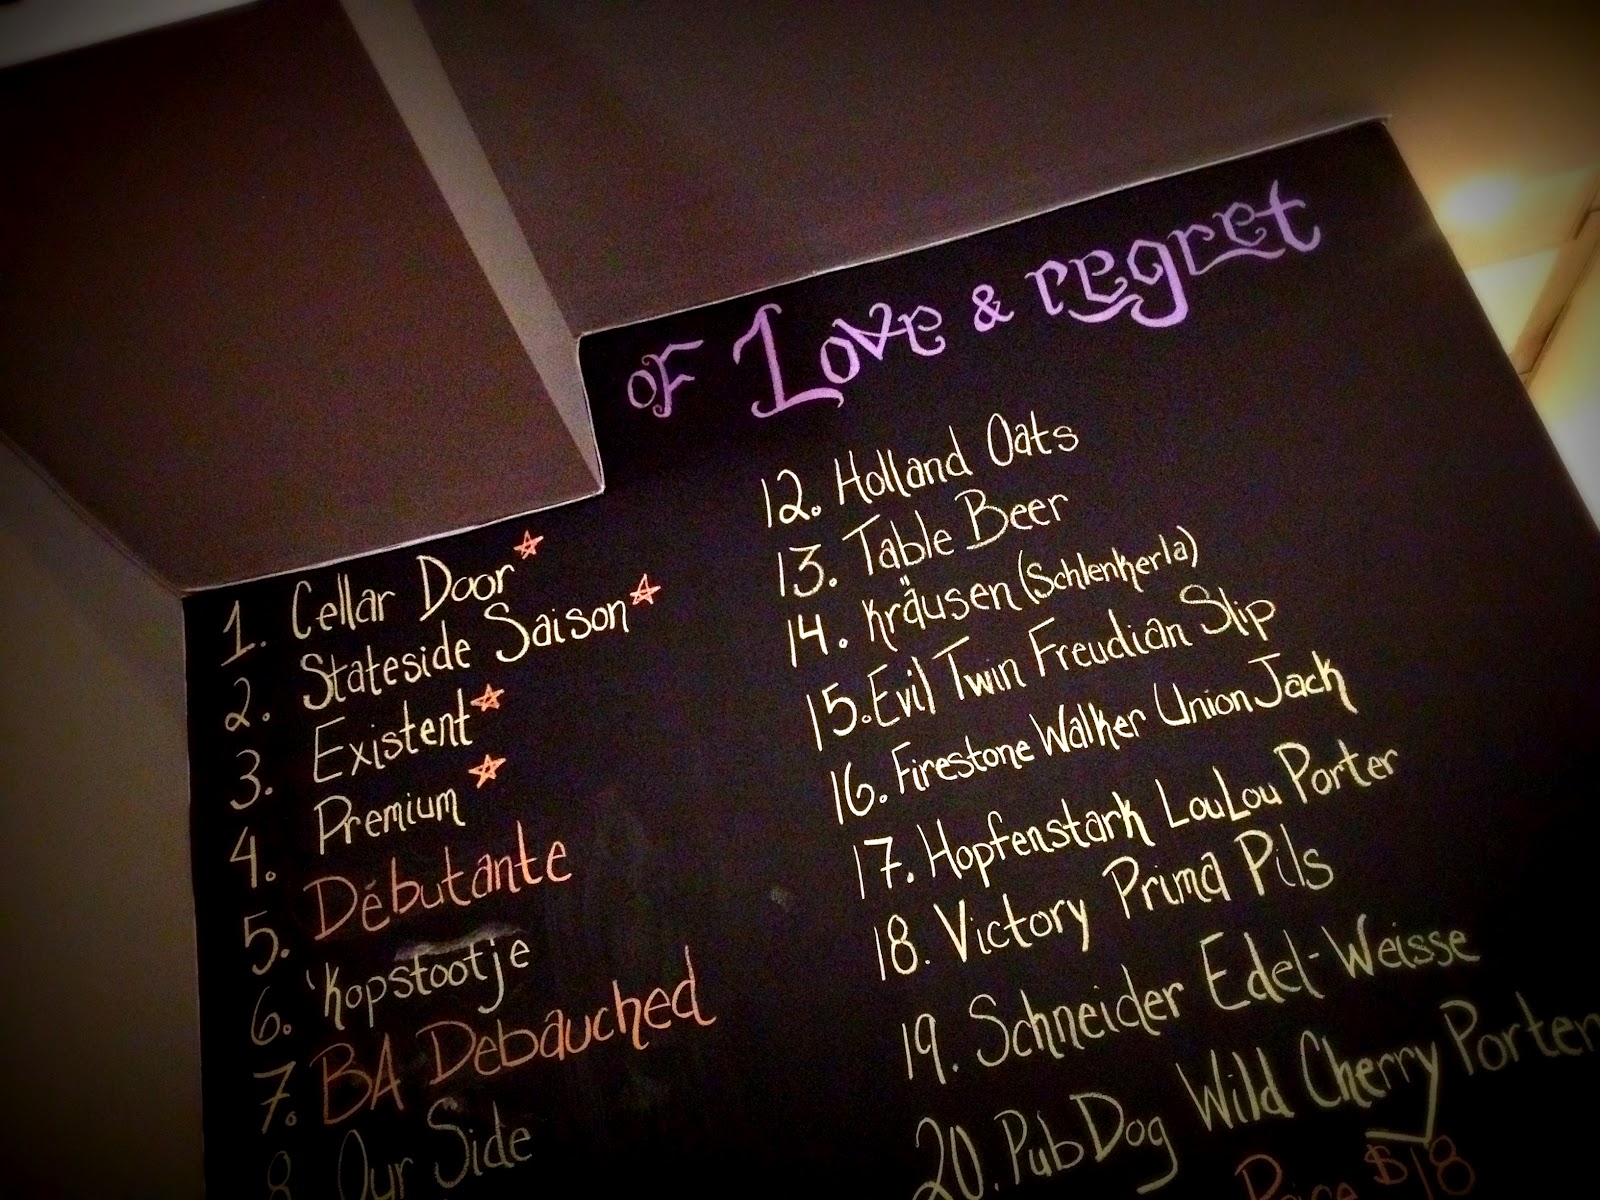 oF Love & regret
1. Cellar Door
2. Stateside Saison
3. Existent
4. Premium
5. Débutante
6. 'Kopstootje
7. BA Debauched
8 Our Side
12. Holland Oats
13. Table Beer
14. Kräusen (Schlenkerla)
15. Evil Twin Freudian Slip
16. Firestone Walker Union Jack
17. Hopfenstark LouLou Porter
18. Victory Prima Pils
19. Schneider Edel-Weisse
20. PubDog Wild Cherry Porter
$18